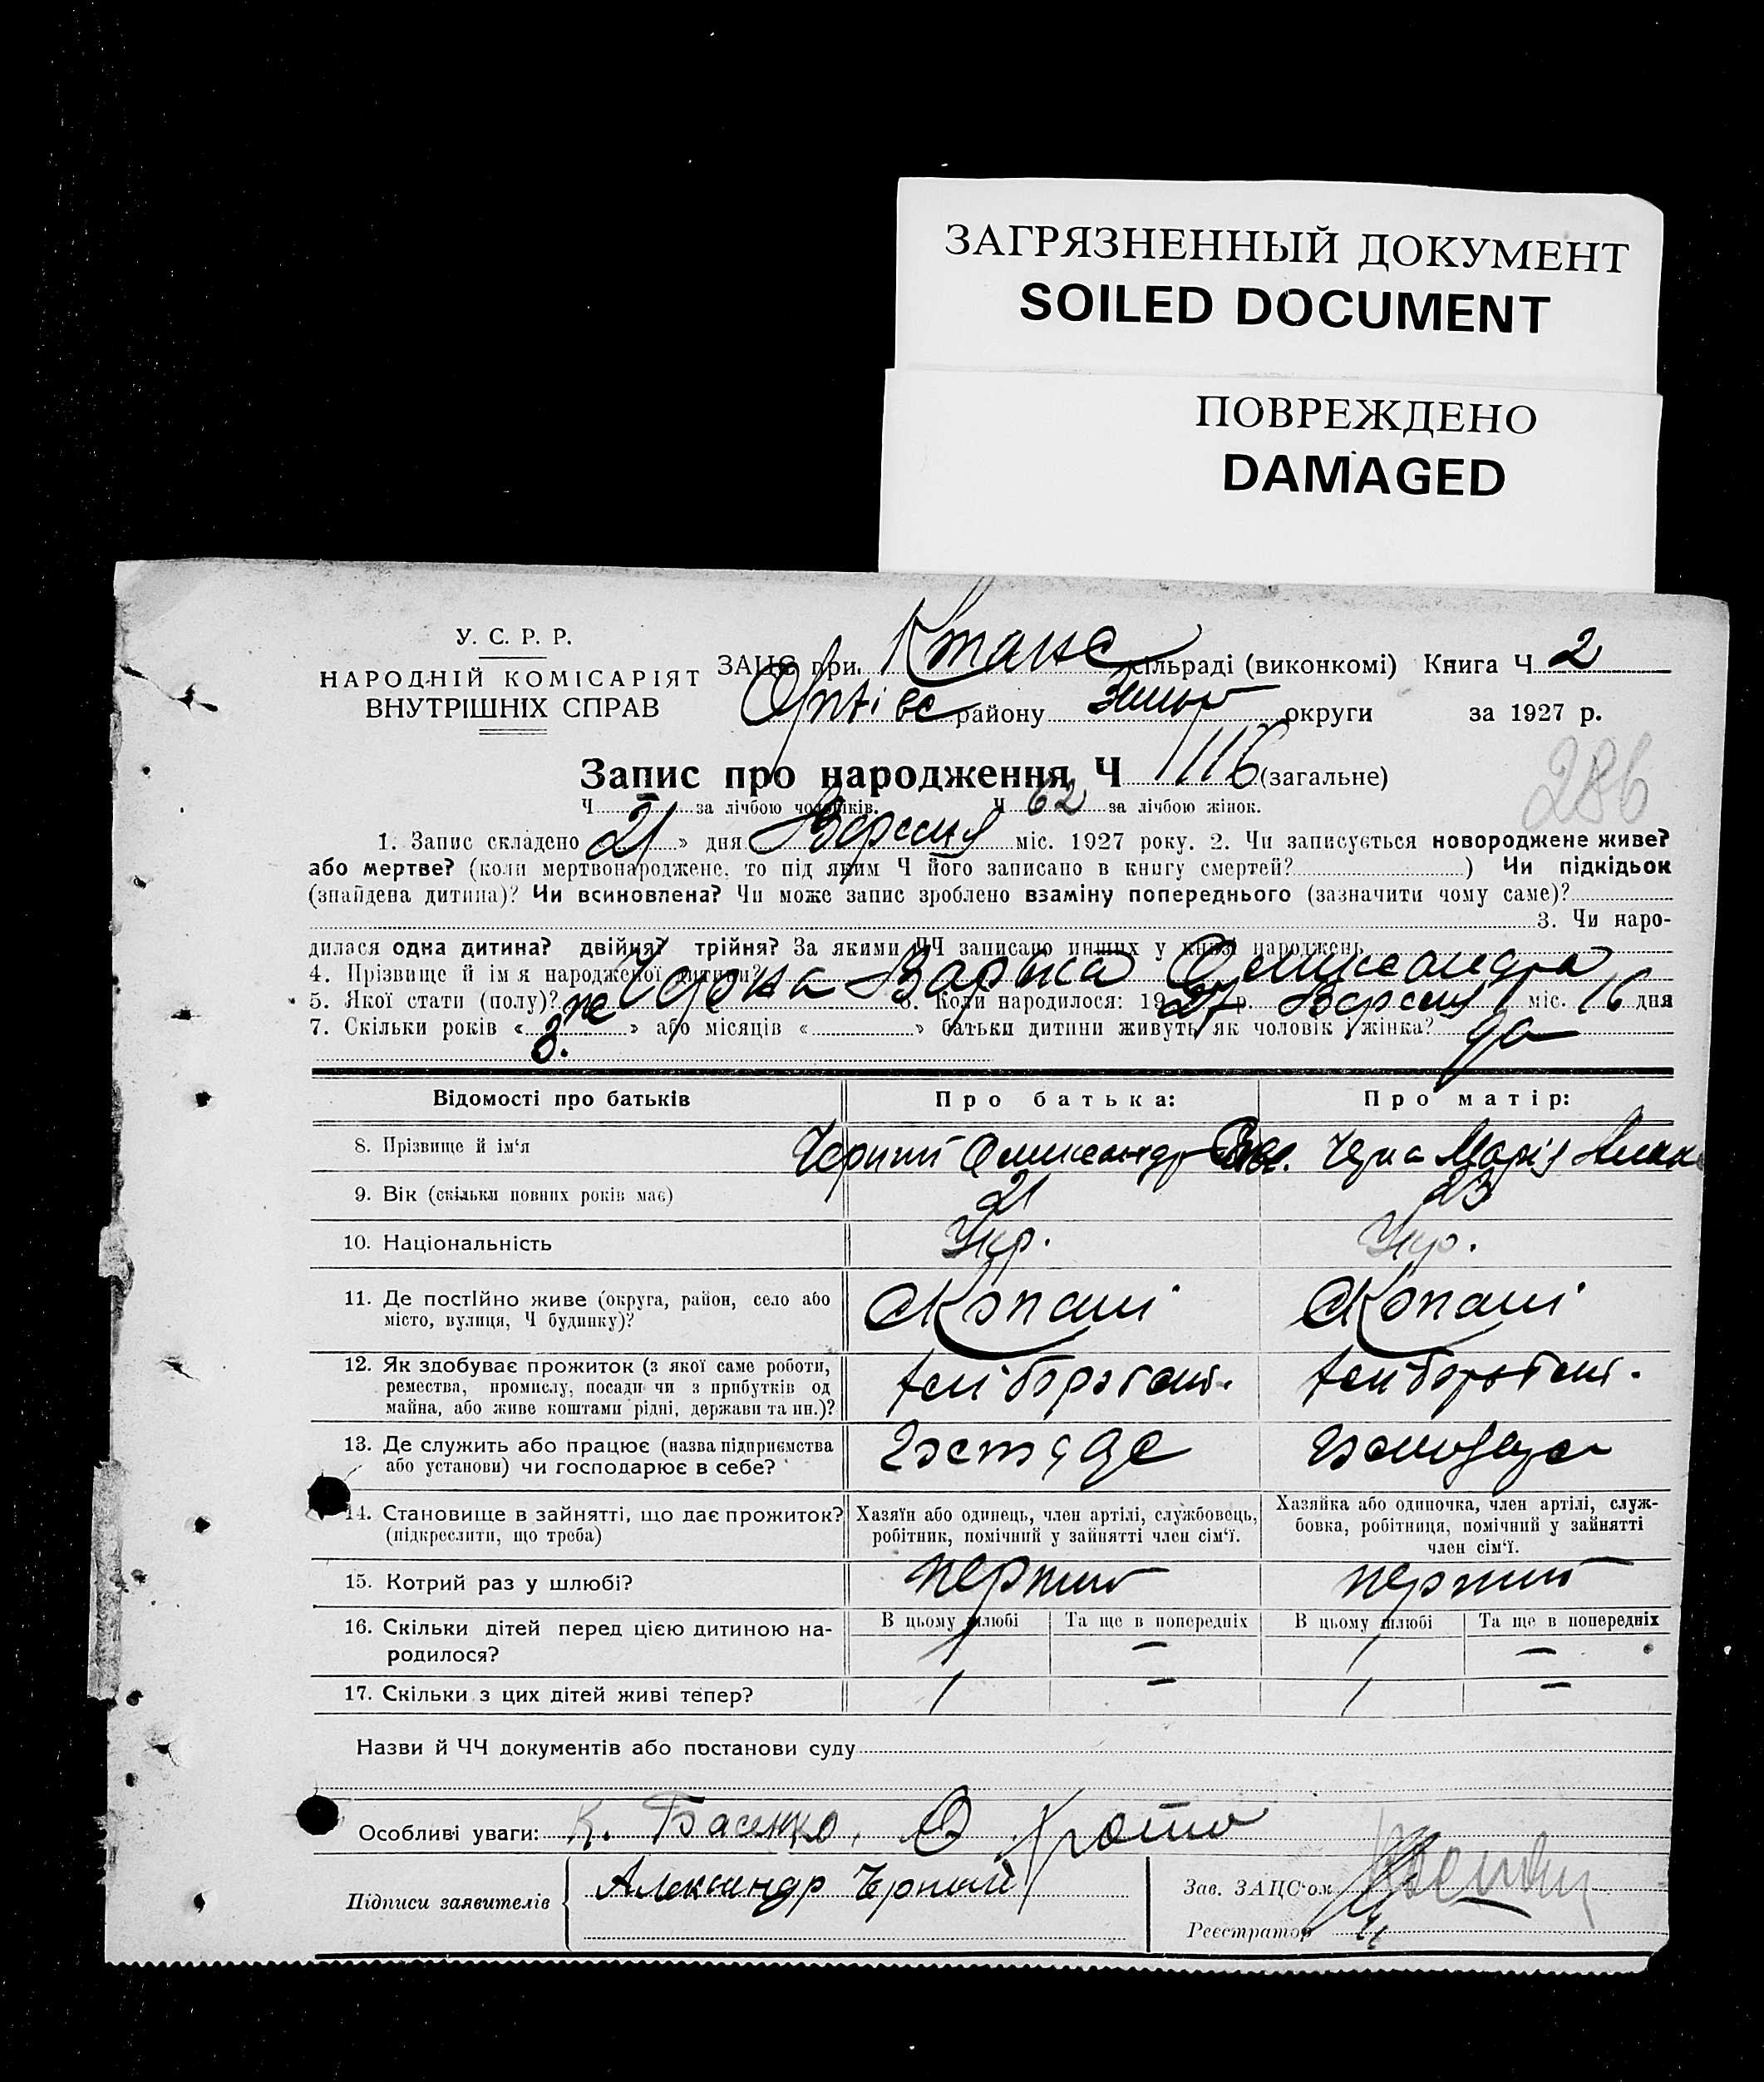 ЗАГРЯЗНЕННЫЙ ДОКУМЕНТ
SOILED DOCUMENT
ПОВРЕЖДЕНО
DAMAGED
У. С. Р. Р.
НАРОДНІЙ КОМІСАРІЯТ
ВНУТРІШНІХ СПРАВ
ЗАЦС при сільраді (виконкомі) Книга Ч 2
району округи за 1927 р.
Запис про народження Ч 116 (загальне)
286
Ч за лічбою чоловіків. Ч 62 за лічбою жінок.
1. Запис складено « 21 » дня Вересня міс. 1927 року. 2. Чи записується новороджене живе?
або мертве? (коли мертвонароджене, то під яким Ч його записано в книгу смертей? ) Чи підкідьок
(знайдена дитина)? Чи всиновлена? Чи може запис зроблено взаміну попереднього (зазначити чому саме)?
3. Чи наро-
дилася одна дитина? двійня? трійня? За якими ЧЧ записано инших у книзі народжень
4. Прізвище й ім'я народженої дитини? Чорна Варька Олександра
5. Якої стати (полу)? же 6. Коли народилося: 1927 р. Вересня міс. 16 дня
7. Скільки років « 3. » або місяців « » батьки дитини живуть як чоловік і жінка? да
Відомості про батьків Про батька: Про матір:
8. Прізвище й ім'я Чорний Олександр Чорна Марія
9. Вік (скільки повних років має) 21 23
10. Національність Укр. Укр.
11. Де постійно живе (округа, район, село або
місто, вулиця, Ч будинку)? с Копані с Копані
12. Як здобуває прожиток (з якої саме роботи,
ремества, промислу, посади чи з прибутків од
майна, або живе коштами рідні, держави та ин.)?
13. Де служить або працює (назва підприємства
або установи) чи господарює в себе?
14. Становище в зайнятті, що дає прожиток?
(підкреслити, що треба)
Хазяїн або одинець, член артілі, службовець,
робітник, помічний у зайнятті член сім'ї.
Хазяйка або одиночка, член артілі, служ-
бовка, робітниця, помічний у зайнятті
член сім'ї.
15. Котрий раз у шлюбі? перший перший
16. Скільки дітей перед цією дитиною на-
родилося?
В цьому шлюбі Та ще в попередніх В цьому шлюбі Та ще в попередніх
1 — 1 —
17. Скільки з цих дітей живі тепер? 1 — 1 —
Назви й ЧЧ документів або постанови суду
Особливі уваги: К. Басенко,
Підписи заявителів Александр Чорный
Зав. ЗАЦС'ом
Реєстратор